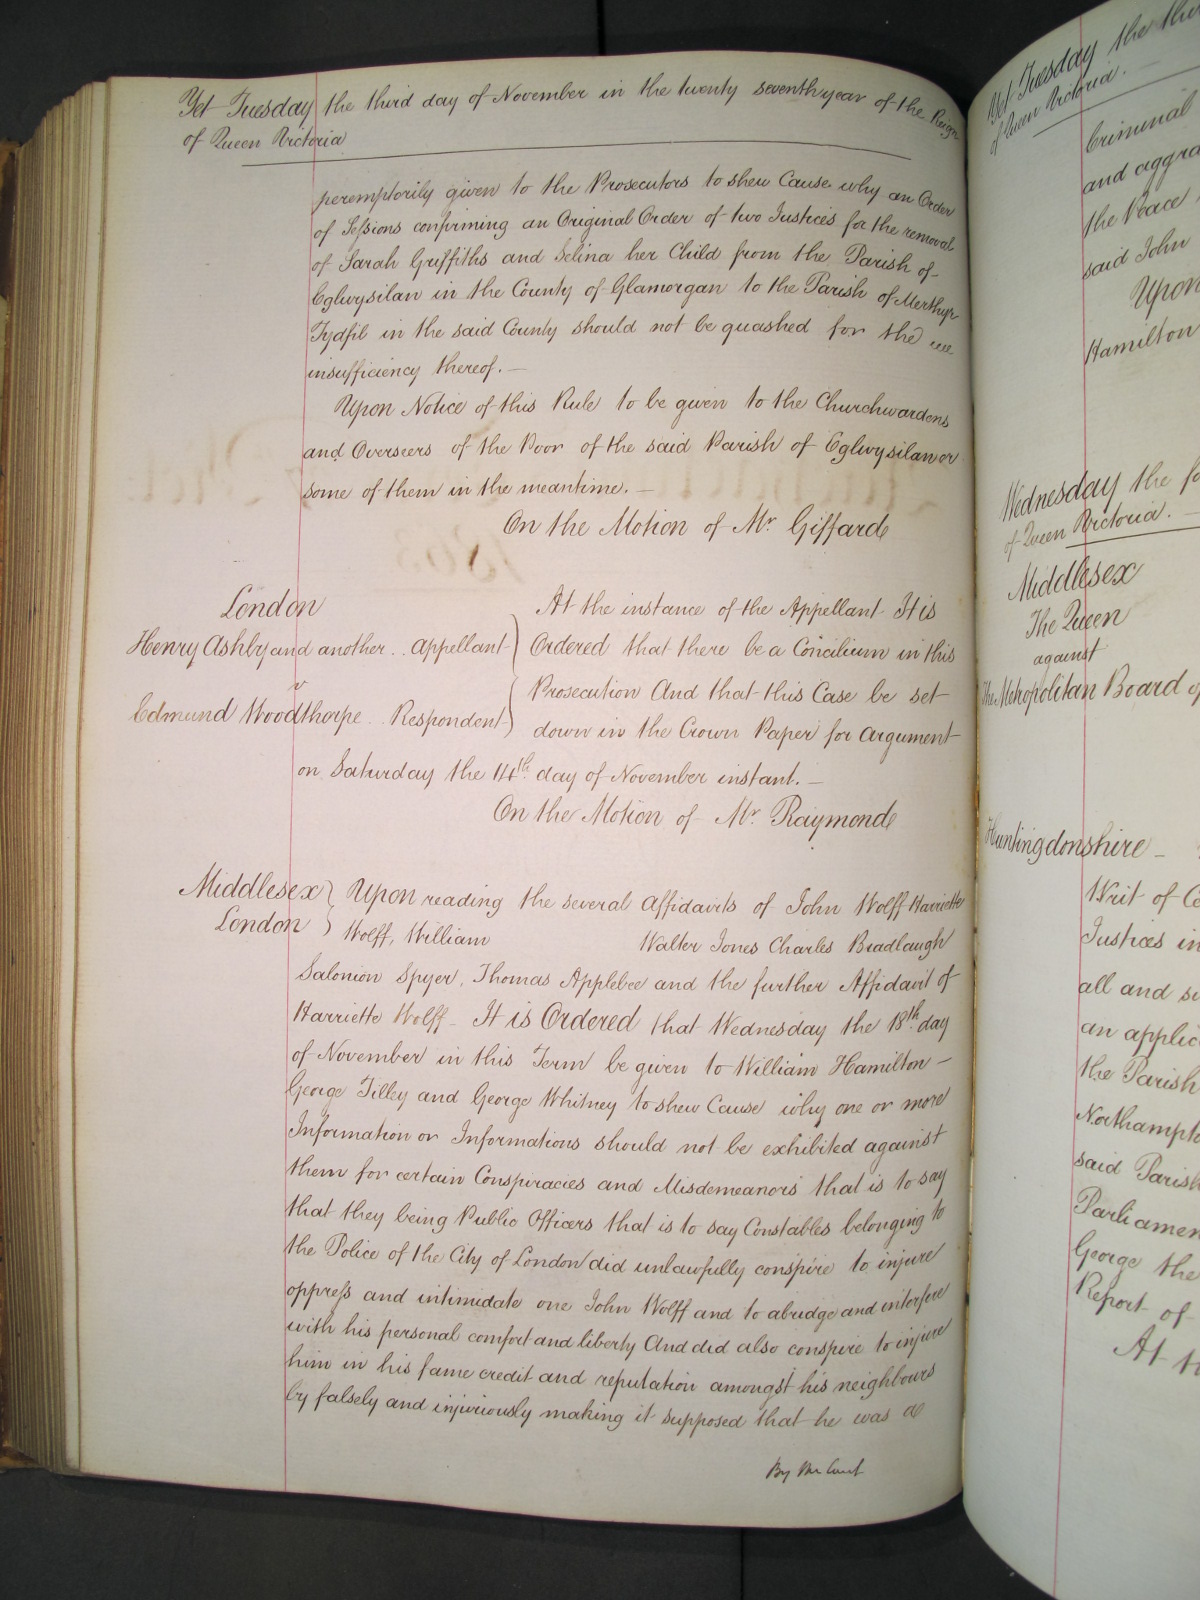 Yet Tuesday the third day of November in the twenty seventh year of the Reign
of Queen Victoria
peremptorily given to the Prosecutors to shew Cause why an Order
of Sessions confirming an Original Order of two Justices for the removal
of Sarah Griffiths and Selina her Child from the Parish of
Eglwysilan in the County of Glamorgan to the Parish of Merthyr
Tydfil in the said County should not be quashed for the
insufficiency thereof. —
Upon Notice of this Rule to be given to the Churchwardens
and Overseers of the Poor of the said Parish of Eglwysilan or
some of them in the meantime. —
On the Motion of Mr. Giffard
London
Henry Ashby and another .. appellant
v
Edmund Woodthorpe .. Respondent
At the instance of the Appellant It is
Ordered that there be a Concilium in this
Prosecution And that this Case be set
down in the Crown Paper for argument
on Saturday the 14th. day of November instant. —
On the Motion of Mr. Raymond
Middlesex
London
Upon reading the several Affidavits of John Wolff Harriette
Wolff, William Walter Jones Charles Bradlaugh
Salomon Spyer, Thomas Applebee and the further Affidavit of
Harriette Wolff — It is Ordered that Wednesday the 18th. day
of November in this Term be given to William Hamilton —
George Tilley and George Whitney to shew Cause why one or more
Information or Informations should not be exhibited against
them for certain Conspiracies and Misdemeanors that is to say
that they being Public Officers that is to say Constables belonging to
the Police of the City of London did unlawfully conspire to injure
oppress and intimidate one John Wolff and to abridge and interfere
with his personal comfort and liberty And did also conspire to injure
him in his fame credit and reputation amongst his neighbours
by falsely and injuriously making it supposed that he was a
By the Court
Yet Tuesday the
of Queen Victoria. —
Criminal
and aggra
the Peace
said John
Upon
Hamilton
Wednesday the fo
of Queen Victoria. —
Middlesex
The Queen
against
The Metropolitan Board of
Huntingdonshire —
Writ of Ce
Justices in
all and si
an applic
the Parish
Northampto
said Parish
Parliamen
George the
Report of
At t